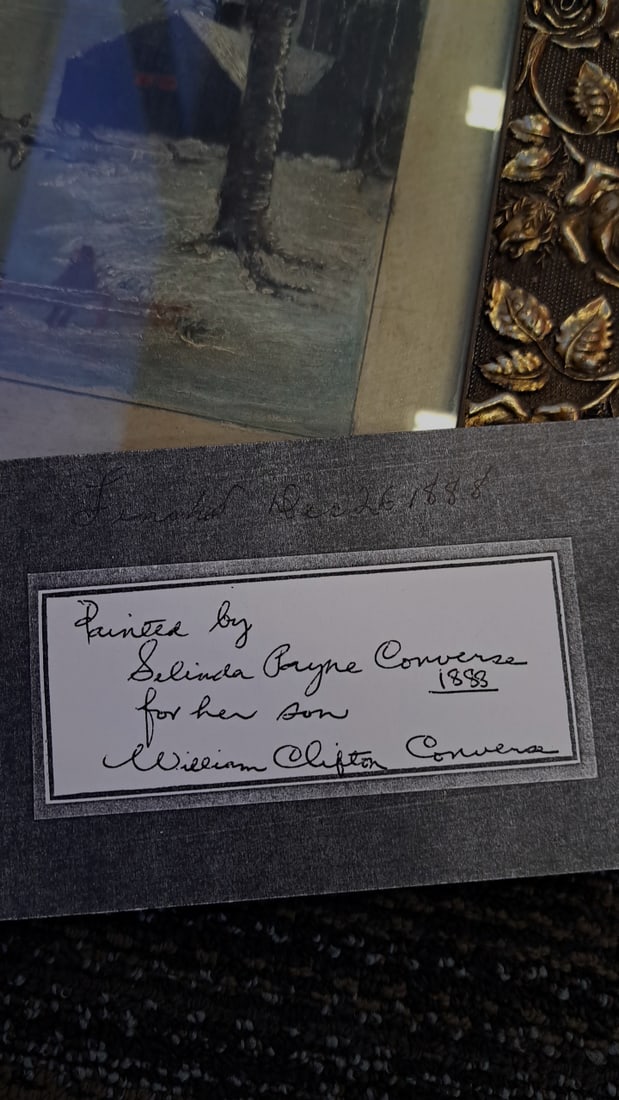 Finished Dec 26 1888
Painted by
Selinda Payne Converse
1888
for her son
William Clifton Converse